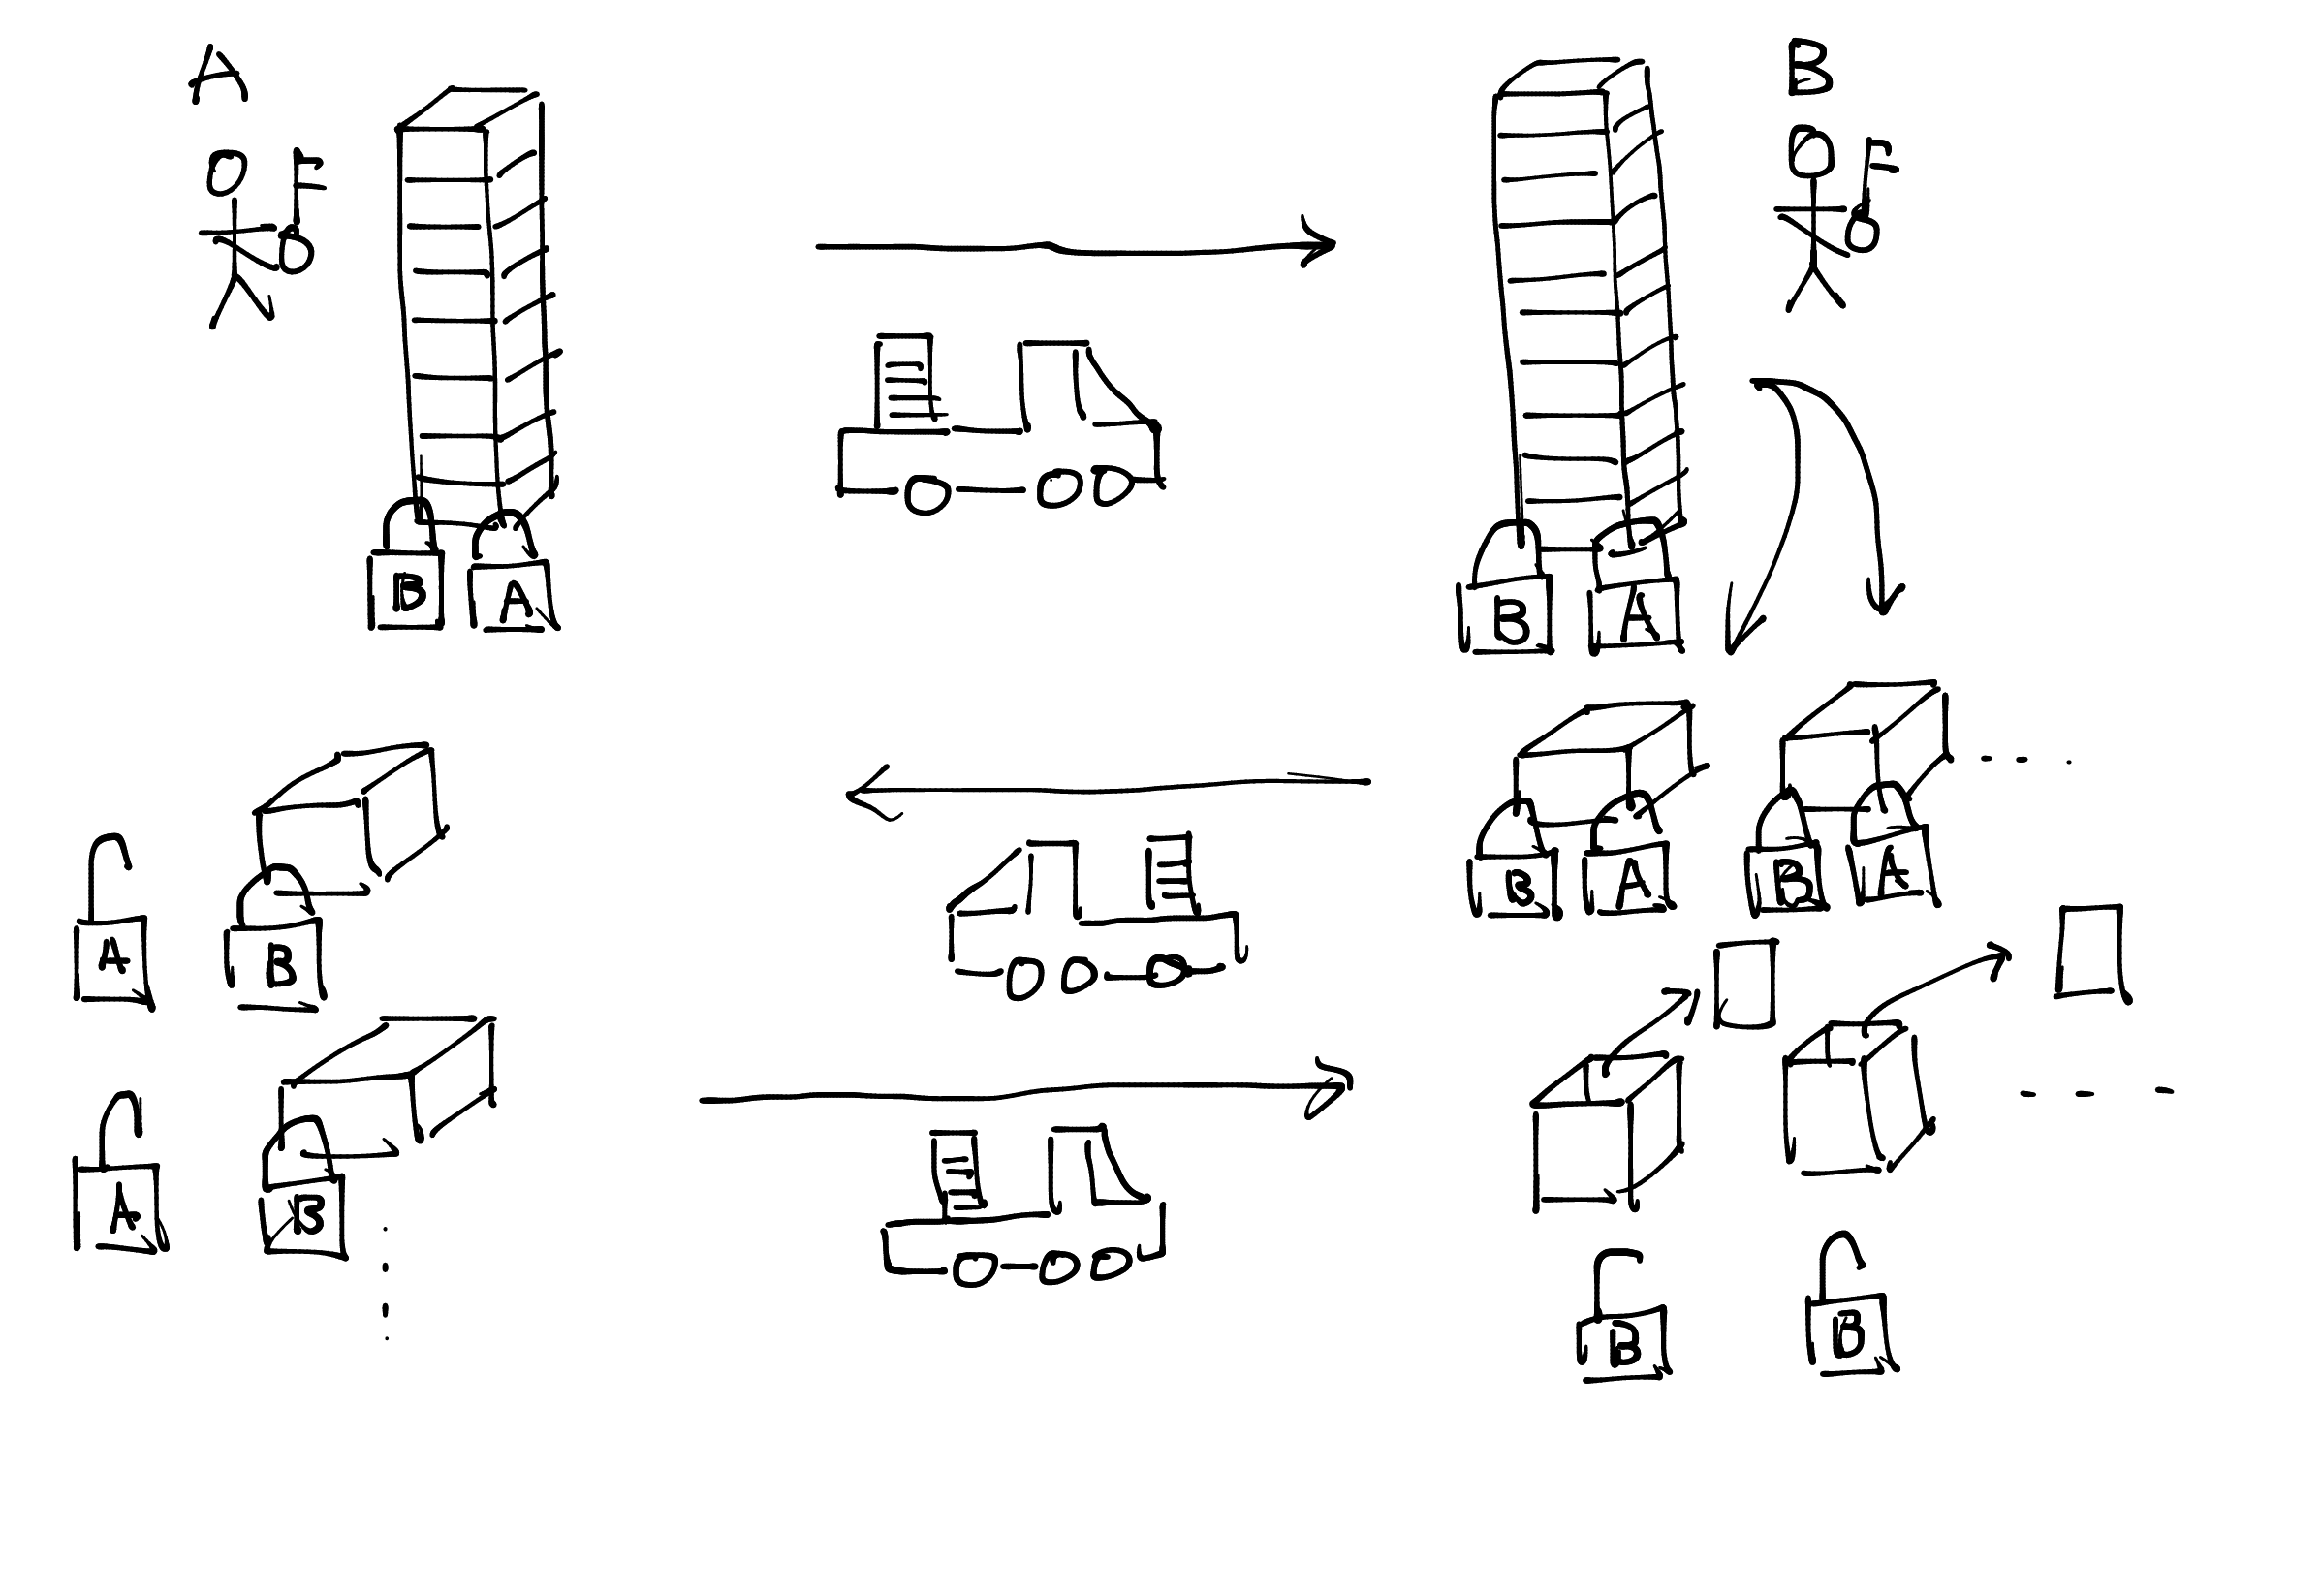 A
B
B A
B A
B A
B A
A B
A B
B B